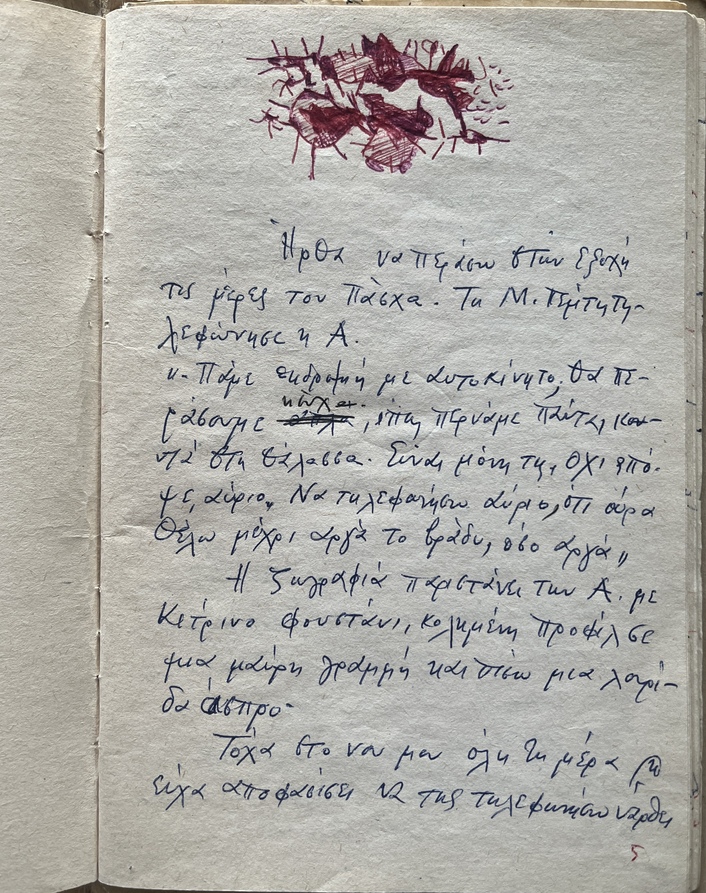 Ήρθα να περάσω στην εξοχή
τις μέρες του Πάσχα. Τη Μ. Πέμτη τη-
λεφώνησε η Α.
"- Πάμε εκδρομή με αυτοκίνητο, θα πε-
ράσουμε , όπως περνάμε πάντα, κον-
τά στη θάλασσα. Είναι μόνη της, όχι από-
ψε, αύριο„ Να τηλεφωνήσω αύριο, ότι ώρα
θέλω μέχρι αργά το βράδυ, όσο αργά„
Η ζωγραφιά παριστάνει την Α. με
κίτρινο φουστάνι, κολημένη προφίλ σε
μια μαύρη γραμμή και πίσω μια λουρί-
δα άσπρο.
Τόχα στο νου μου όλη τη μέρα το
είχα αποφασίσει να της τηλεφωνήσω νάρθει
5